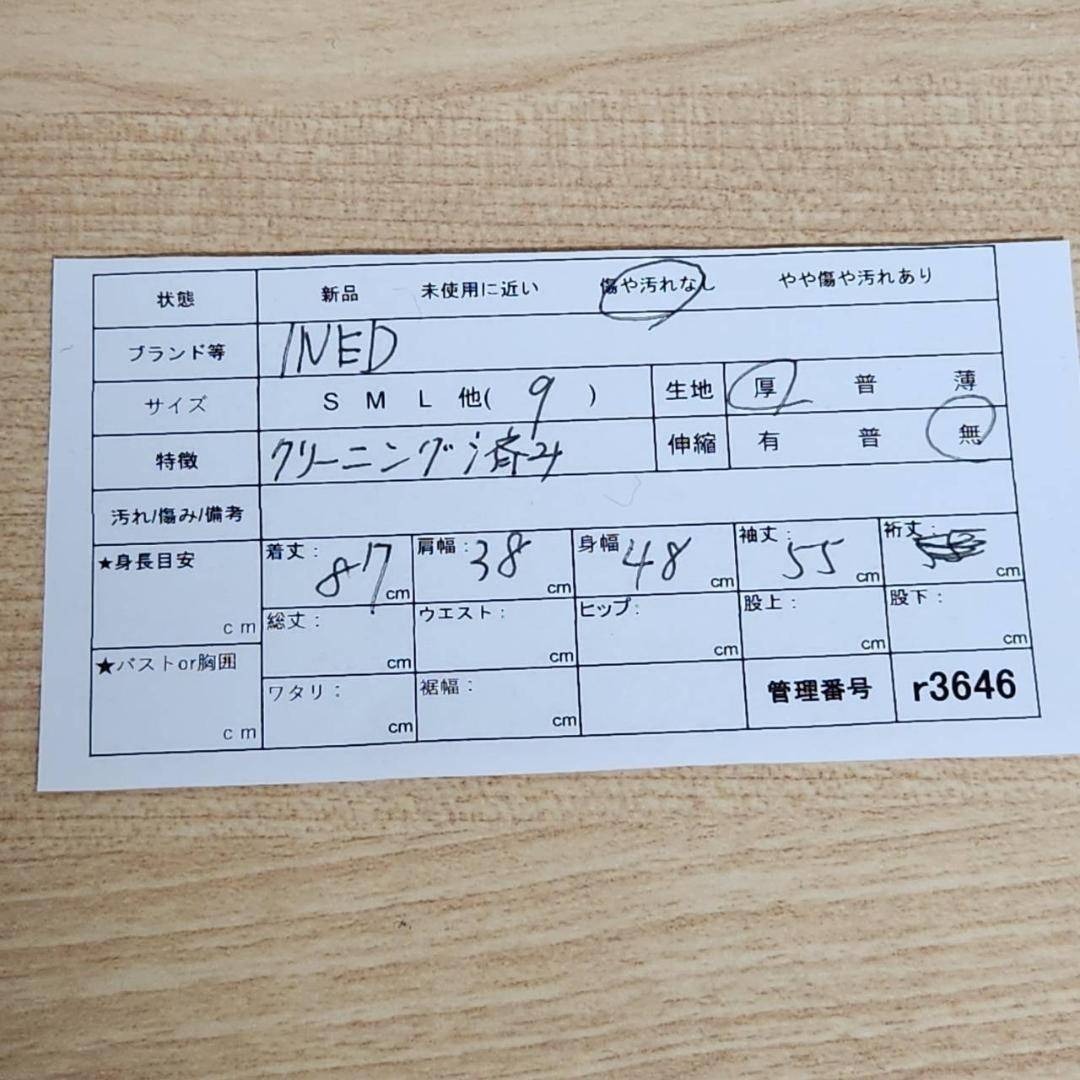 状態 新品 未使用に近い 傷や汚れなし やや傷や汚れあり
ブランド等 INED
サイズ S M L 他( 9 ) 生地 厚 普 薄
特徴 クリーニング済み 伸縮 有 普 無
汚れ/傷み/備考
★身長目安 cm
着丈: 87 cm 肩幅: 38 cm 身幅 48 cm 袖丈: 55 cm 裄丈: cm
総丈: cm ウエスト: cm ヒップ: cm 股上: cm 股下: cm
★バストor胸囲 cm
ワタリ: cm 裾幅: cm 管理番号 r3646